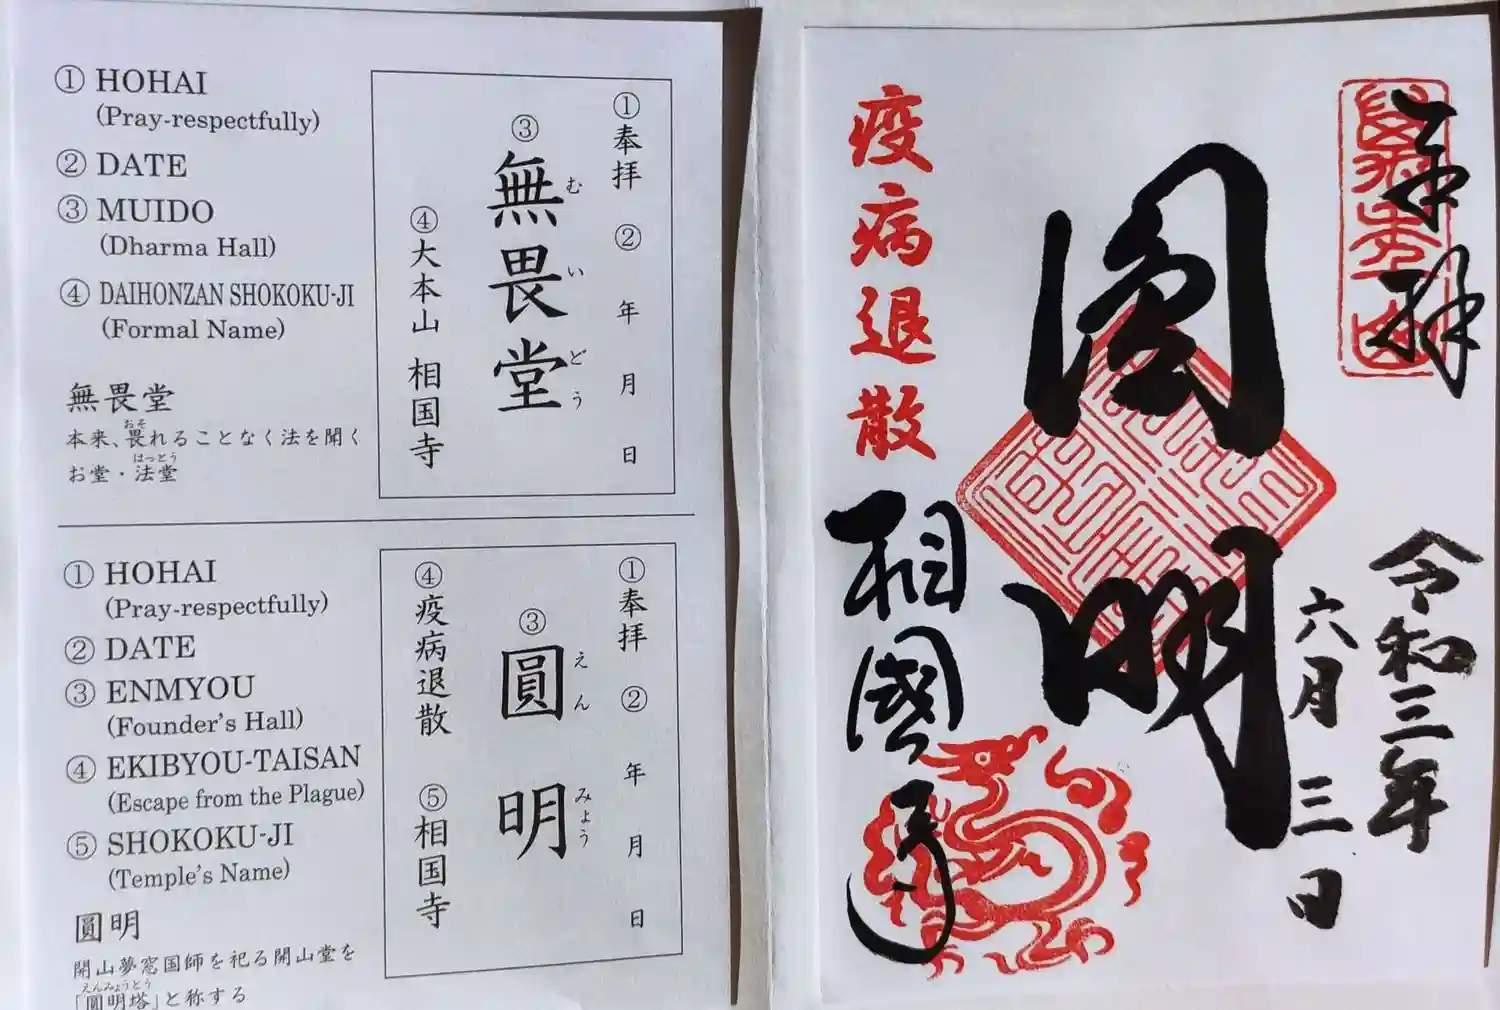 ① HOHAI
(Pray-respectfully)
② DATE
③ MUIDO
(Dharma Hall)
④ DAIHONZAN SHOKOKU-JI
(Formal Name)
無畏堂
おそ
本来、畏れることなく法を聞く
はっとう
お堂・法堂
①奉拝 ② 年 月 日
③無畏堂
むいどう
④大本山 相国寺
① HOHAI
(Pray-respectfully)
② DATE
③ ENMYOU
(Founder's Hall)
④ EKIBYOU-TAISAN
(Escape from the Plague)
⑤ SHOKOKU-JI
(Temple's Name)
圓明
開山夢窓国師を祀る開山堂を
えんみょうとう
「圓明塔」と称する
①奉拝 ② 年 月 日
③圓明
えんみょう
④疫病退散 ⑤相国寺
奉拝
令和三年
六月三日
圓明
疫病退散
相國寺